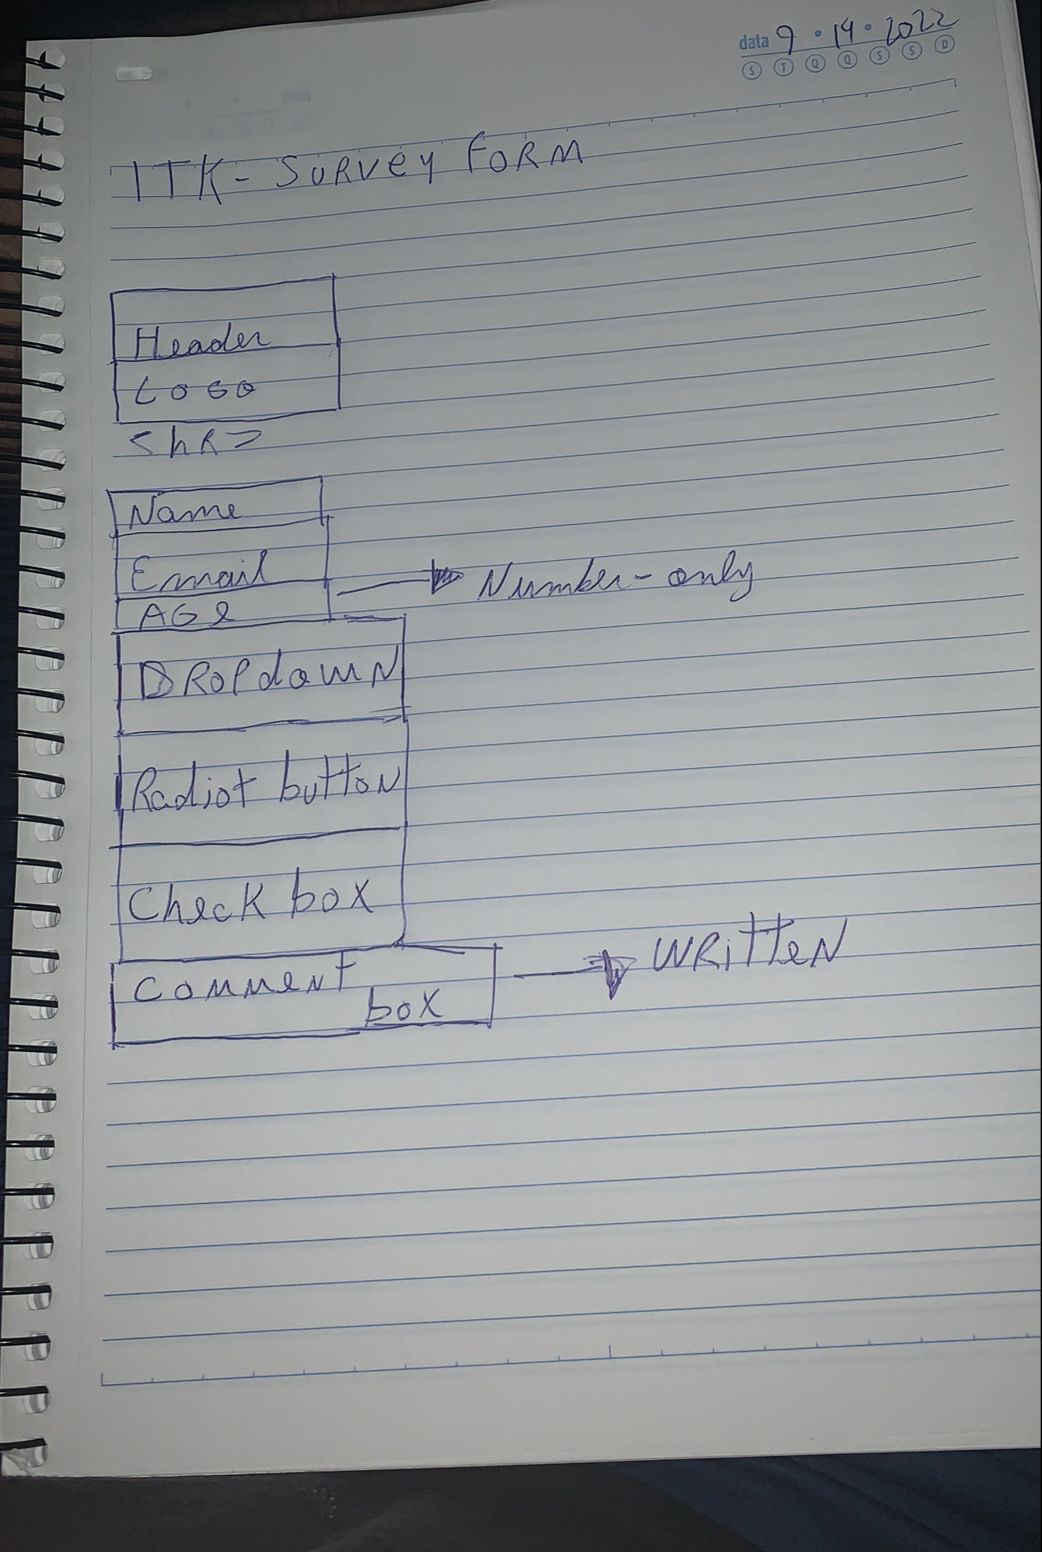 data 9 • 14 • 2022
S T Q Q S S D
ITK - SURVEY FORM
Header
LOGO
<hR>
Name
Email
AGe
Number - only
DROPdowN
Radiot buttoN
Check box
COMMENT
box
WRitteN